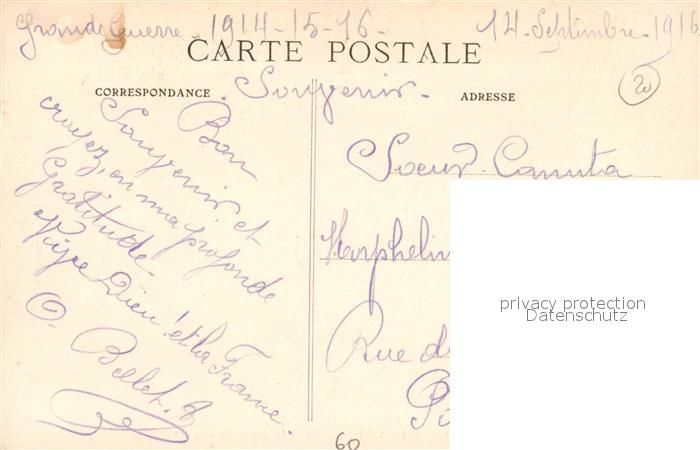 Grande Guerre - 1914-15-16- 14-Septembre-1916
CARTE POSTALE
Souvenir-
CORRESPONDANCE
ADRESSE
20
Bon
Souvenir et
croyez, en ma profonde
Gratitude
Vive Dieu! et la France.
O. Bellet.
Soeur Canuta
Rue d
privacy protection
Datenschutz
60